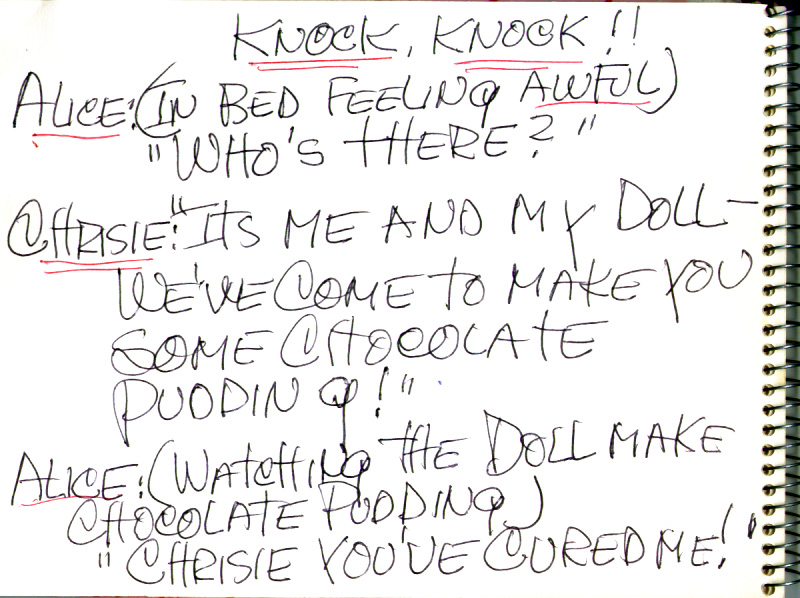 KNOCK, KNOCK!!
ALICE: (IN BED FEELING AWFUL)
"WHO'S THERE?"
CHRISIE: "ITS ME AND MY DOLL-
WE'VE COME TO MAKE YOU
SOME CHOCOLATE
PUDDING!"
ALICE: (WATCHING THE DOLL MAKE
CHOCOLATE PUDDING)
"CHRISIE YOU'VE CURED ME!"